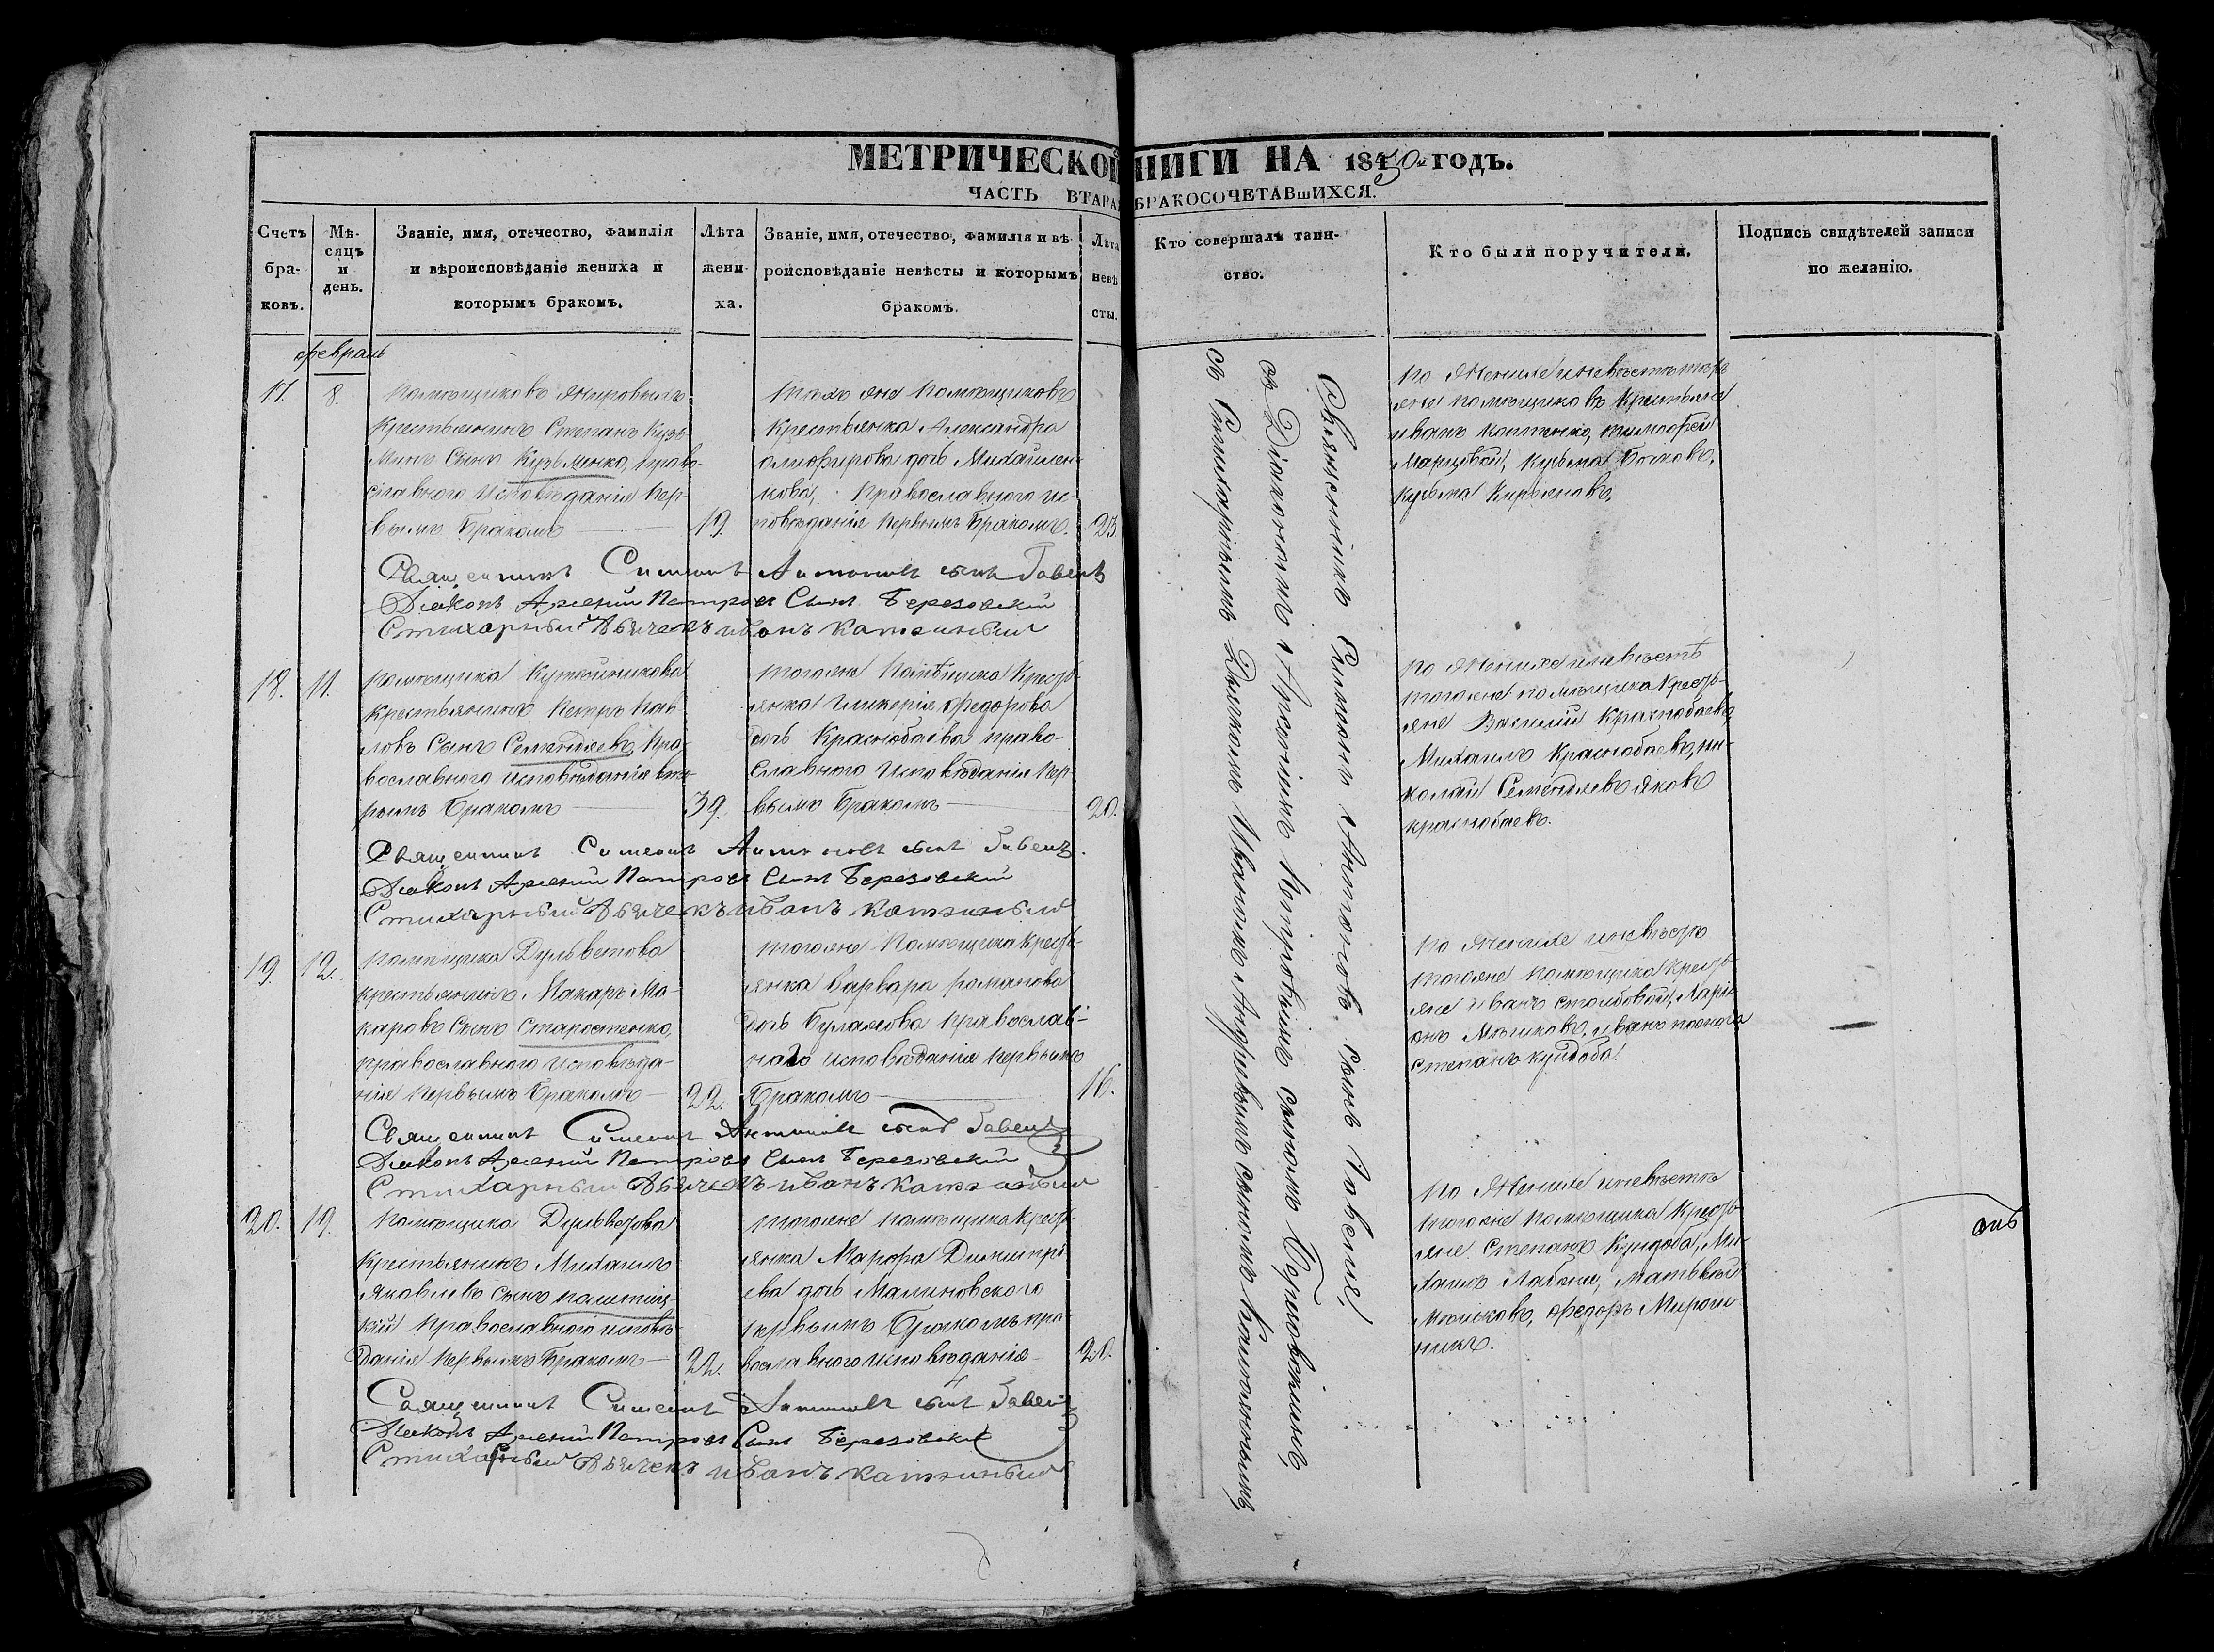 МЕТРИЧЕСКОЙ НИГИ НА 1850й ГОДЪ.
ЧАСТЬ ВТАРАЯ БРАКОСОЧЕТАВШИХСЯ.
Счетъ браковъ.
Мѣсяцъ и день.
Званіе, имя, отечество, фамилія
и вѣроисповѣданіе жениха и
которымъ бракомъ.
Лѣта
жени-
ха.
Званіе, имя, отечество, фамилія и вѣ-
роисповѣданіе невѣсты и которымъ
бракомъ.
Лѣта
невѣ
сты.
Кто совершалъ таин-
ство.
Кто были поручители.
Подпись свидѣтелей записи
по желанію.
февраль
17. 8.
Помѣщиковъ
Крестьянинъ Степанъ Кузь
минъ Сынъ Кузьменко, право-
славного Исповѣданія пер-
вымъ Бракомъ 19.
тѣхъ же Помѣщиковъ
Крестьянка Александра
дочь Михайлен-
кова, Православного ис-
повѣданія Первымъ Бракомъ. 23
по женихе и невѣсте тѣхъ
же помѣщиковъ Крестьяне
иванъ тимофей
Кузьма
Кузьма
Священникъ Симеонъ Антоновъ сынъ Говенъ
Діаконъ Арсеній Петровъ Сынъ Березовскій
Стихарный Дьячекъ иванъ
18. 11.
помѣщика Кутейникова
Крестьянинъ Петръ Пав
ловъ Сынъ Семендяевъ, Пра-
вославного исповѣданія вто-
рымъ Бракомъ 39.
тогоже Помѣщика Кресть-
янка Гликерія Федорова
дочь Краснобаева право-
Славного Исповѣданія Пер-
вымъ Бракомъ 20.
по женихе и невѣсте
тогоже помѣщика Кресть-
яне Василий Краснобаевъ,
Михаилъ Краснобаевъ, ни-
колай Семендяевъ Яковъ
краснобаевъ.
Священникъ Симеонъ Антоновъ сынъ Говенъ
Діаконъ Арсеній Петровъ Сынъ Березовскій
Стихарный Дьячекъ иванъ
19. 12.
помѣщика Дульветова
крестьянинъ Макаръ Ма-
каровъ Сынъ Старостенко,
православного Исповѣда-
нія Первымъ Бракомъ 22.
тогоже Помѣщика кресть-
янка Варвара романова
дочь Булахова Православ-
наго исповѣданія первымъ
Бракомъ 16.
по женихе и невѣсте
тогоже помѣщика Кресть-
яне иванъ Ларі-
онъ иванъ
Степанъ кундоба.
Священникъ Симеонъ Антоновъ сынъ Говенъ
Діаконъ Арсеній Петровъ Сынъ Березовскій
Стихарный Дьячекъ иванъ
20. 19.
Помѣщика Дульветова
Крестьянинъ Михаилъ
Яковлевъ сынъ
Православного исповѣ-
данія первымъ Бракомъ 22.
тогоже помѣщика кресть-
янка Марфа Димитрі-
ева дочь Малиновского
первымъ Бракомъ пра-
вославного исповѣданія 20.
по женихе и невѣсте
тогоже помѣщика Кресть-
яне Степанъ Кундоба, Ми-
хаилъ Матвѣй
Федоръ Мирош-
никъ.
Священникъ Симеонъ Антоновъ сынъ Говенъ
Діаконъ Арсеній Петровъ Сынъ Березовскій
Стихарный Дьячекъ иванъ
Священникъ Симеонъ Антоновъ сынъ Говенъ,
съ Діакономъ Арсеніемъ Петровымъ сыномъ Березовскимъ,
съ Стихарнымъ Дьячкомъ Иваномъ Андреевымъ сыномъ